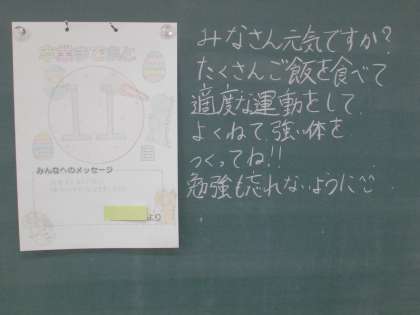 卒業まであと
11
日
みんなへのメッセージ
より
みなさん元気ですか？
たくさんご飯を食べて
適度な運動をして
よくねて強い体を
つくってね!!
勉強も忘れないように